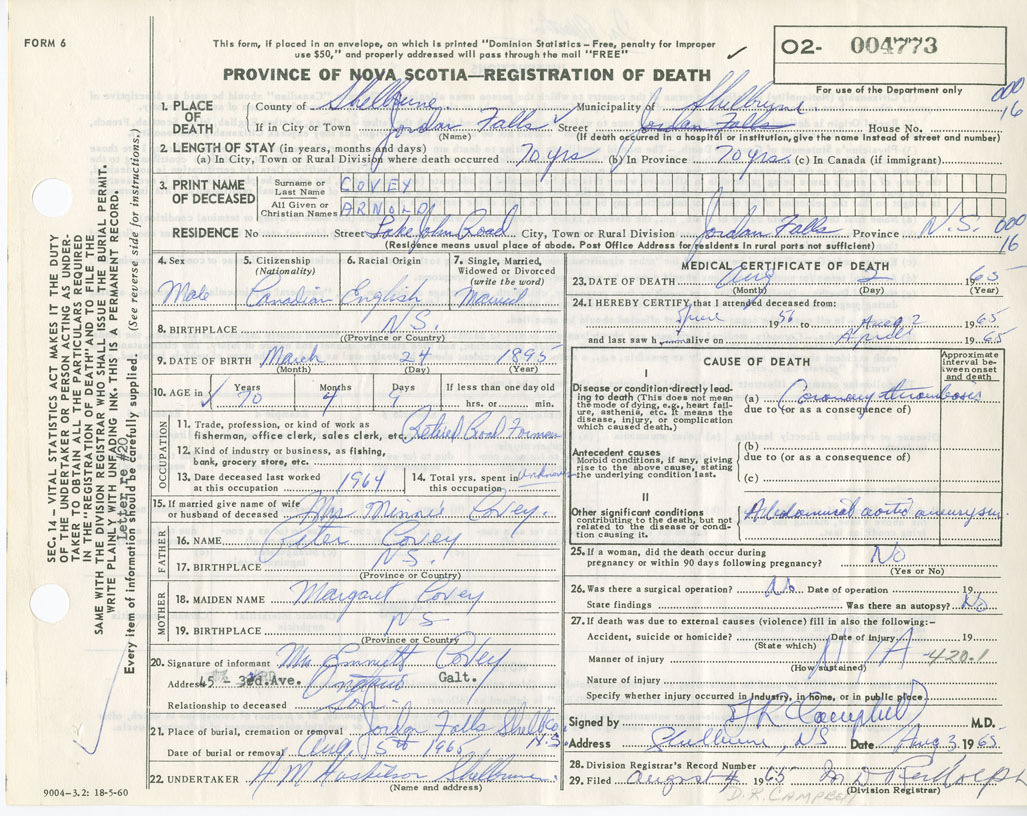 FORM 6
This form, if placed in an envelope, on which is printed "Dominion Statistics – Free, penalty for improper
use $50," and properly addressed will pass through the mail "FREE"
✓
O2- 004773
PROVINCE OF NOVA SCOTIA—REGISTRATION OF DEATH
For use of the Department only
000
16
1. PLACE OF DEATH
County of Shelburne Municipality of Shelburne
If in City or Town Jordan Falls ✓ Street Jordan Falls House No.
(Name) (If death occurred in a hospital or institution, give the name instead of street and number)
2. LENGTH OF STAY (in years, months and days)
(a) In City, Town or Rural Division where death occurred 70 yrs (b) In Province 70 yrs. (c) In Canada (if immigrant)
3. PRINT NAME OF DECEASED
Surname or Last Name COVEY
All Given or Christian Names ARNOLD
RESIDENCE No Street Lake John Road City, Town or Rural Division Jordan Falls Province N.S.
000
16
(Residence means usual place of abode. Post Office Address for residents in rural parts not sufficient)
4. Sex
Male
5. Citizenship
(Nationality)
Canadian
6. Racial Origin
English
7. Single, Married,
Widowed or Divorced
(write the word)
Married
8. BIRTHPLACE N.S.
(Province or Country)
9. DATE OF BIRTH March 24 1895
(Month) (Day) (Year)
10. AGE in ✓ Years 70 Months 4 Days 9 If less than one day old
hrs. or min.
OCCUPATION
11. Trade, profession, or kind of work as
fisherman, office clerk, sales clerk, etc. Retired Road Foreman
12. Kind of industry or business, as fishing,
bank, grocery store, etc.
13. Date deceased last worked
at this occupation 1964
14. Total yrs. spent in
this occupation Unknown
15. If married give name of wife
or husband of deceased Mrs. Minnie Covey.
FATHER
16. NAME Peter Covey
17. BIRTHPLACE N.S.
(Province or Country)
MOTHER
18. MAIDEN NAME Margaret Covey
19. BIRTHPLACE NS
(Province or Country)
20. Signature of informant Mrs Emmett Covey
Address 45 - 3rd.Ave. Ontario Galt.
Relationship to deceased son
21. Place of burial, cremation or removal Jordan Falls Shelb Co. N.S.
Date of burial or removal Aug 5th 1965
22. UNDERTAKER H M Huskilson Shelburne
(Name and address)
9004–3.2: 18-5-60
MEDICAL CERTIFICATE OF DEATH
23. DATE OF DEATH Aug 2 1965
(Month) (Day) (Year)
24. I HEREBY CERTIFY that I attended deceased from:
June 1956 to Aug 2 1965
and last saw him alive on April 1965
CAUSE OF DEATH
Approximate interval between onset and death
I
Disease or condition directly leading to death (This does not mean the mode of dying, e.g., heart failure, asthenia, etc. It means the disease, injury, or complication which caused death.
(a) Coronary thrombosis
due to (or as a consequence of)
Antecedent causes
Morbid condition, if any, giving rise to the above cause, stating the underlying condition last.
(b)
due to (or as a consequence of)
(c)
II
Other significant conditions
contributing to the death, but not related to the disease or condition causing it.
Abdominal aortic aneurysm.
25. If a woman, did the death occur during
pregnancy or within 90 days following pregnancy? No
(Yes or No)
26. Was there a surgical operation? No. Date of operation 19
State findings Was there an autopsy? No
27. If death was due to external causes (violence) fill in also the following:–
Accident, suicide or homicide? Date of injury 19
(State which)
Manner of injury N/A –420.1
(How sustained)
Nature of injury
Specify whether injury occurred in industry, in home, or in public place
Signed by D R Campbell M.D.
Address Shelburne, NS Date Aug 3 1965
28. Division Registrar's Record Number
29. Filed August 4 1965
(Division Registrar)
D. R. CAMPBELL
SEC. 14 – VITAL STATISTICS ACT MAKES IT THE DUTY
OF THE UNDERTAKER OR PERSON ACTING AS UNDER-
TAKER TO OBTAIN ALL THE PARTICULARS REQUIRED
IN THE "REGISTRATION OF DEATH" AND TO FILE THE
SAME WITH THE DIVISION REGISTRAR WHO SHALL ISSUE THE BURIAL PERMIT.
WRITE PLAINLY WITH UNFADING INK. THIS IS A PERMANENT RECORD.
Letter re #20
Every item of information should be carefully supplied. (See reverse side for instructions.)